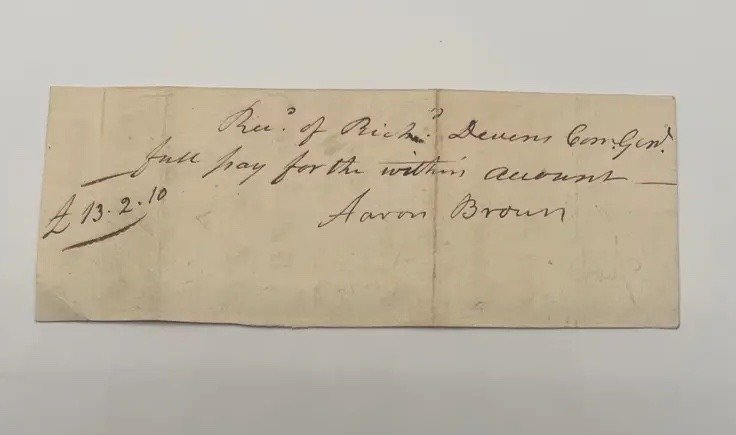 Rec.d of Rich.d Devens Com.Genl.
full pay for the within account
£ 13.2.10
Aaron Brown